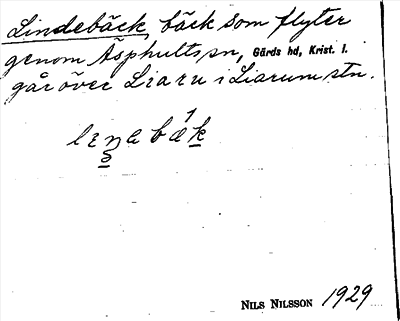 Lindebäck, bäck som flyter
genom Äsphults sn, Gärds hd, Krist. l.
går över Liaru i Liarum stn.
NILS NILSSON 1929